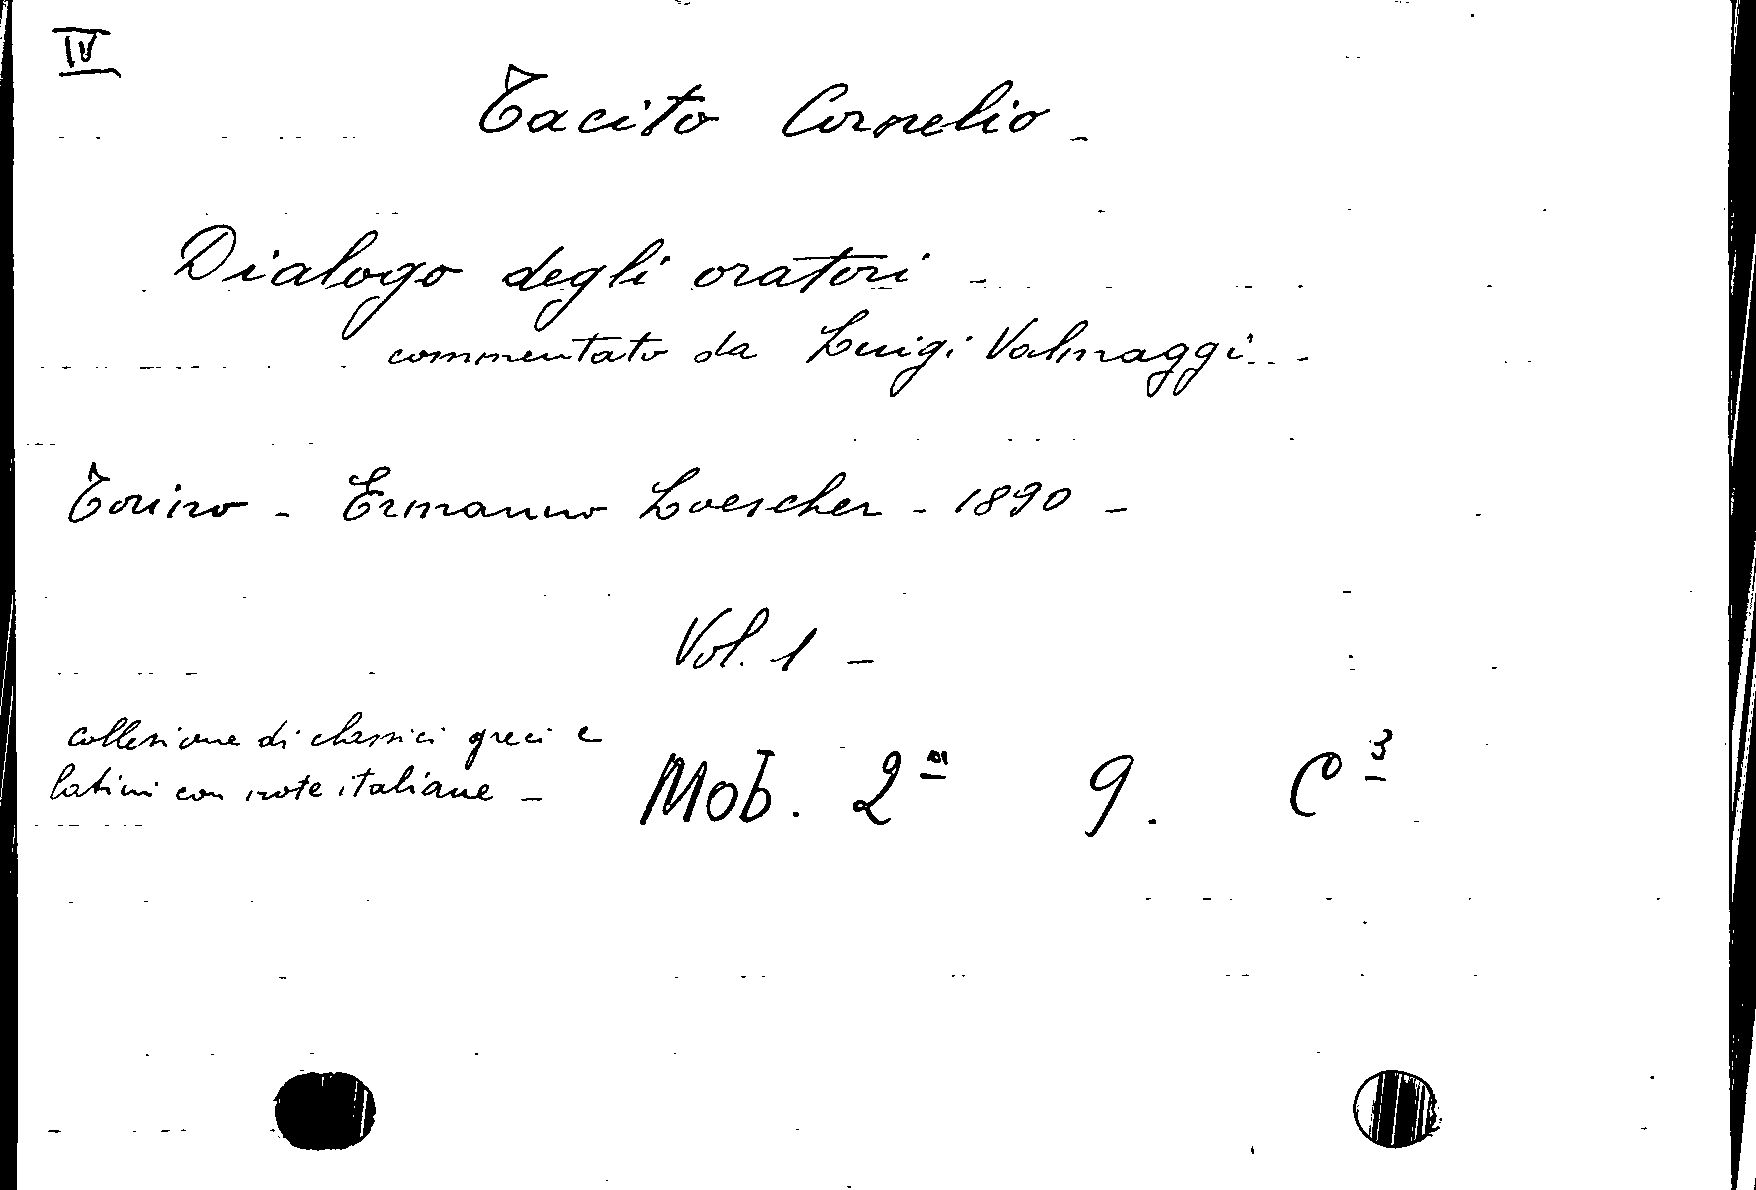 IV
Tacito Cornelio -
Dialogo degli oratori -
commentato da Luigi Valmaggi -
Torino - Ermanno Loescher - 1890 -
Vol. 1 -
collezione di classici greci e
latini con note italiane -
Mob. 2ª 9. C³